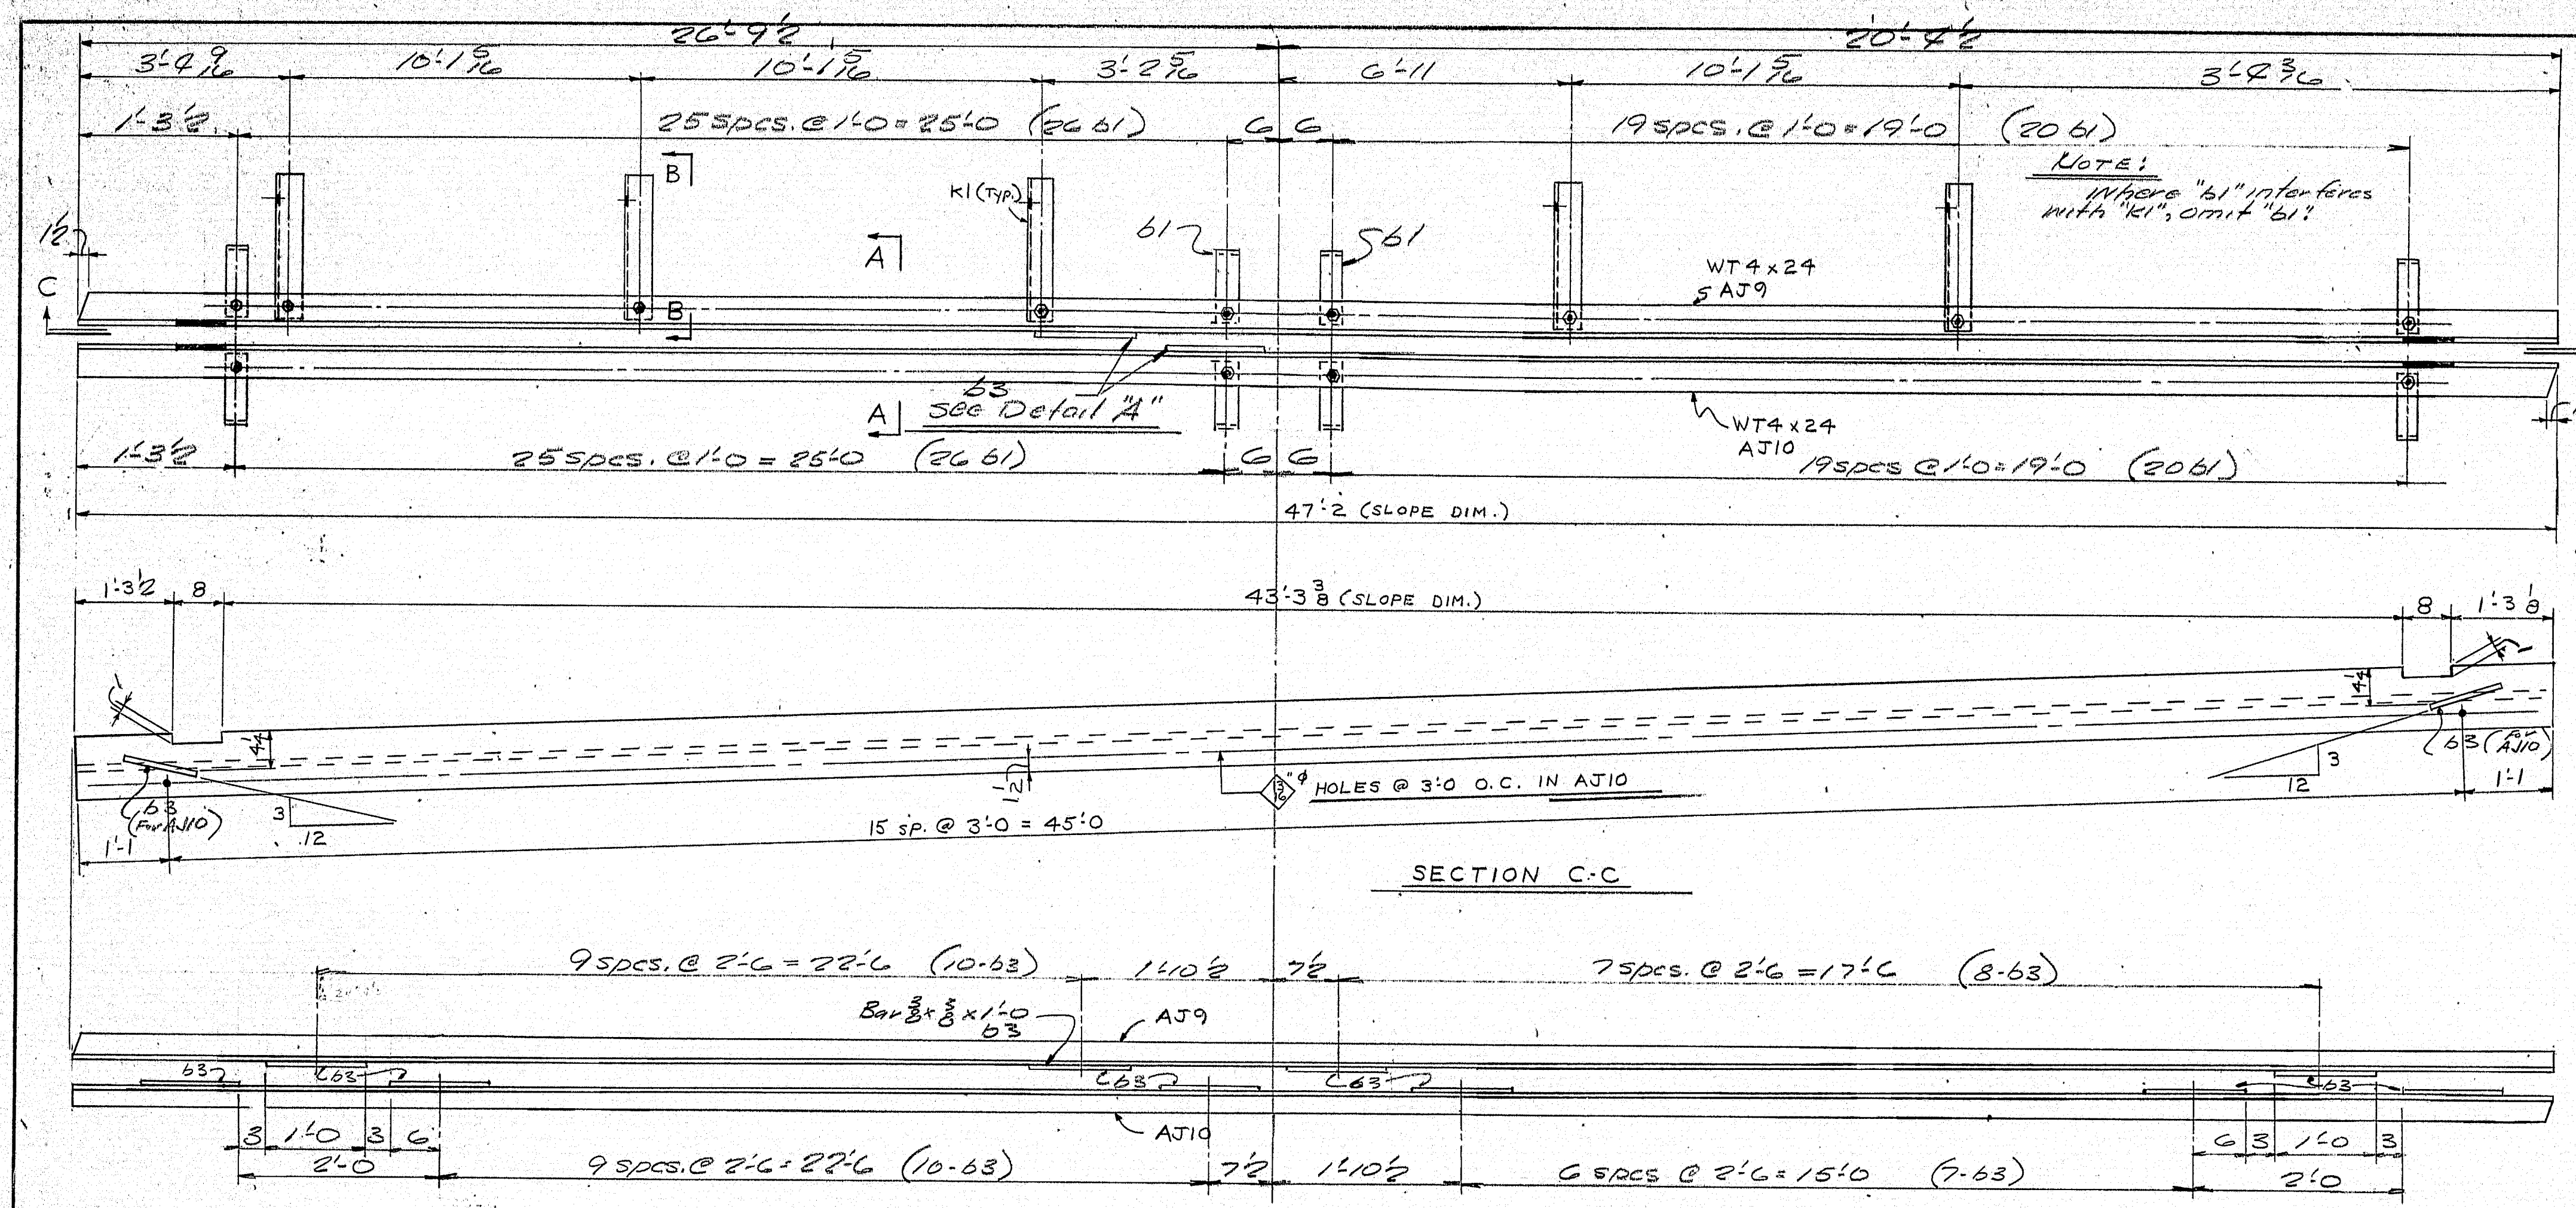 26'-9½
20'-4½
3'-4 9/16
10'-1 5/16
10'-1 5/16
3'-2 5/16
6'-11
10'-1 5/16
3'-4 3/16
1'-3½
25 spcs. @ 1'-0 = 25'-0 (26 b1)
6 6
19 spcs. @ 1'-0 = 19'-0 (20 b1)
NOTE:
Where "b1" interferes
with "k1", omit "b1".
B
K1 (TYP.)
A
b1
b1
½
C
WT 4 x 24
AJ9
B
b3
See Detail "A"
A
C
WT4 x 24
AJ10
1'-3½
25 spcs. @ 1'-0 = 25'-0 (26 b1)
6 6
19 spcs @ 1'-0 = 19'-0 (20 b1)
47'-2 (SLOPE DIM.)
1'-3½
8
43'-3 3/8 (SLOPE DIM.)
8
1'-3 1/8
1
1
4¼
4¼
b3
(For AJ10)
3
12
1½
13/16"φ HOLES @ 3'-0 O.C. IN AJ10
b3 (For AJ10)
3
12
1'-1
1'-1
15 sp. @ 3'-0 = 45'-0
SECTION C-C
9 spcs. @ 2'-6 = 22'-6 (10-b3)
1'-10½
7½
7 spcs. @ 2'-6 = 17'-6 (8-b3)
Bar 3/8 x 3/8 x 1'-0
b3
AJ9
b3
b3
b3
b3
b3
AJ10
3
1'-0
3
6
6
3
1'-0
3
2'-0
9 spcs. @ 2'-6 = 22'-6 (10-b3)
7½
1'-10½
6 spcs @ 2'-6 = 15'-0 (7-b3)
2'-0